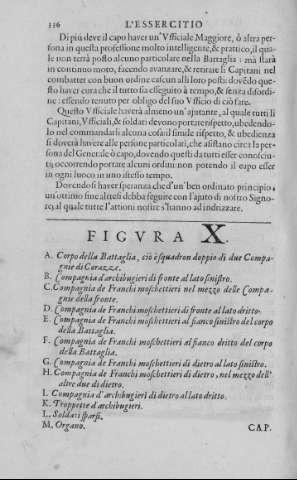 336 L'ESSERCITIO
Di più deve il capo haver un' Vfficiale Maggiore, ò altra per-
sona in questa professione molto intelligente, & prattico, il qua-
le non terrà posto alcuno particolare nella Battaglia : mà starà
in continuo moto, facendo avanzare, & retirare li Capitani nel
combatter con buon ordine cascun alli loro posti dovēdo que-
sto haver cura che il tutto sia esseguito à tempo, & senza disordi-
ne : essendo tenuto per obligo del suo Vfficio di ciò fare.
Questo Vfficiale haverà almeno un' ajutante, al quale tutti li
Capitani, Vfficiali, & soldati devono portare rispetto, ubedendo-
lo nel commandarli alcuna cosa: il simile rispetto, & ubedienza
si doverà havere alle persone particolari, che assistano circa la per-
sona del Generale ò capo, dovendo questi da tutti esser conosciu-
ti, occorrendo portare alcuni ordini: non potendo il capo esser
in ogni luoco in uno istesso tempo.
Dovendosi haver speranza che d'un' ben ordinato principio,
un'ottimo fine altresi debba seguire con l'ajuto di nostro Signo-
re, al quale tutte l'attioni nostre s'hanno ad indrizzare.
FIGVRA X.
A. Corpo della Battaglia, ciò è squadron doppio di due Compa-
gnie di Corazza.
B. Compagnia d'archibugieri di fronte al lato sinistro.
C. Compagnia de Franchi moschettieri nel mezzo delle Compa-
gnie della fronte.
D. Compagnia de Franchi moschettieri di fronte al lato dritto.
E. Compagnia de Franchi moschettieri al fianco sinistro del corpo
della Battaglia.
F. Compagnia de Franchi moschettieri al fianco dritto del corpo
della Battaglia.
G. Compagnia de Franchi moschettieri di dietro al lato sinistro.
H. Compagnia de Franchi moschettieri di dietro, nel mezzo dell'
altre due di dietro.
I. Compagnia d'archibugieri di dietro al lato dritto.
K. Troppette d'archibugieri.
L. Soldati sparsi.
M. Organo. CAP.